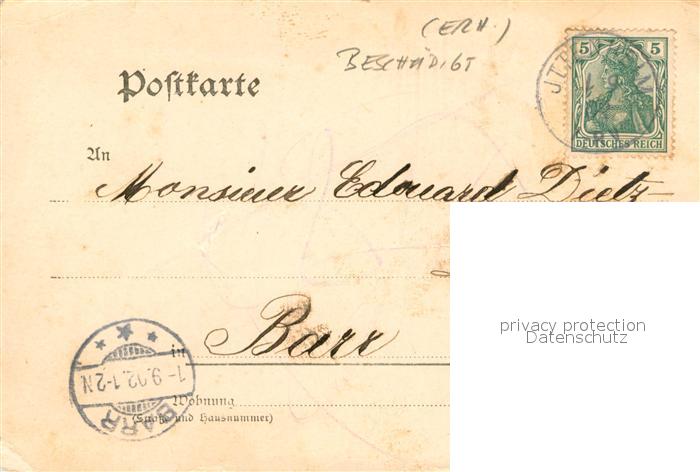 (ERH.)
BESCHÄDIGT
5 5
DEUTSCHES REICH
Postkarte
An
Monsieur Edouard Dietz
in Barr
Wohnung
(Straße und Hausnummer)
1-9.02.1-2N
BARR
privacy protection
Datenschutz